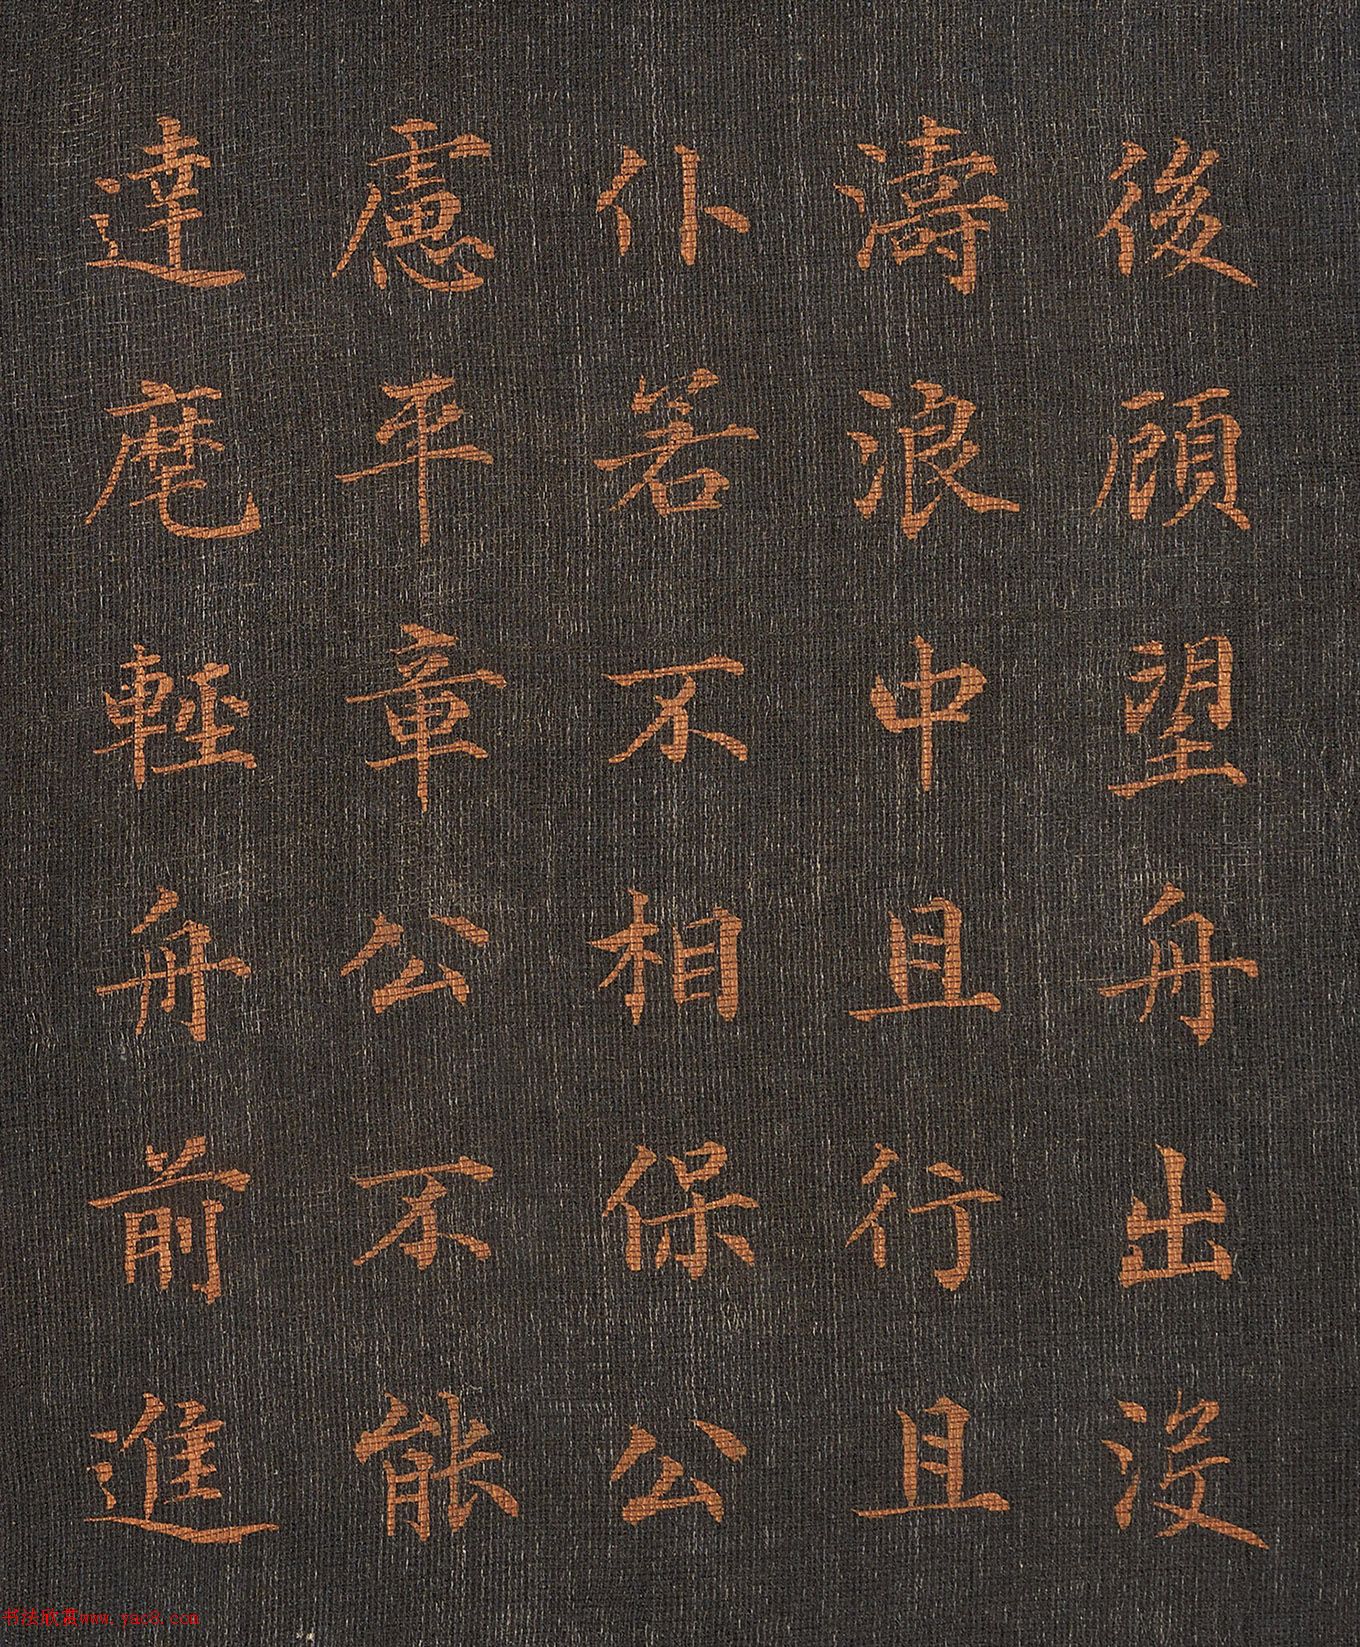 後顧望舟出沒
濤浪中且行且
仆若不相保公
慮平章公不能
達麾輕舟前進
书法欣赏www.yac8.com